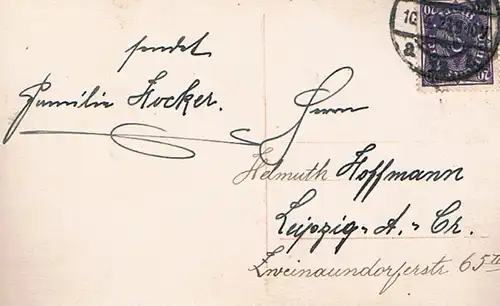 sendet
Familie Hocker.
Herrn
Helmuth Hoffmann
Leipzig-A.-Cr.
Zweinaundorferstr 65 II
20